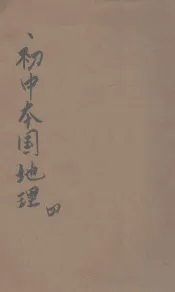 初中本国地理 四